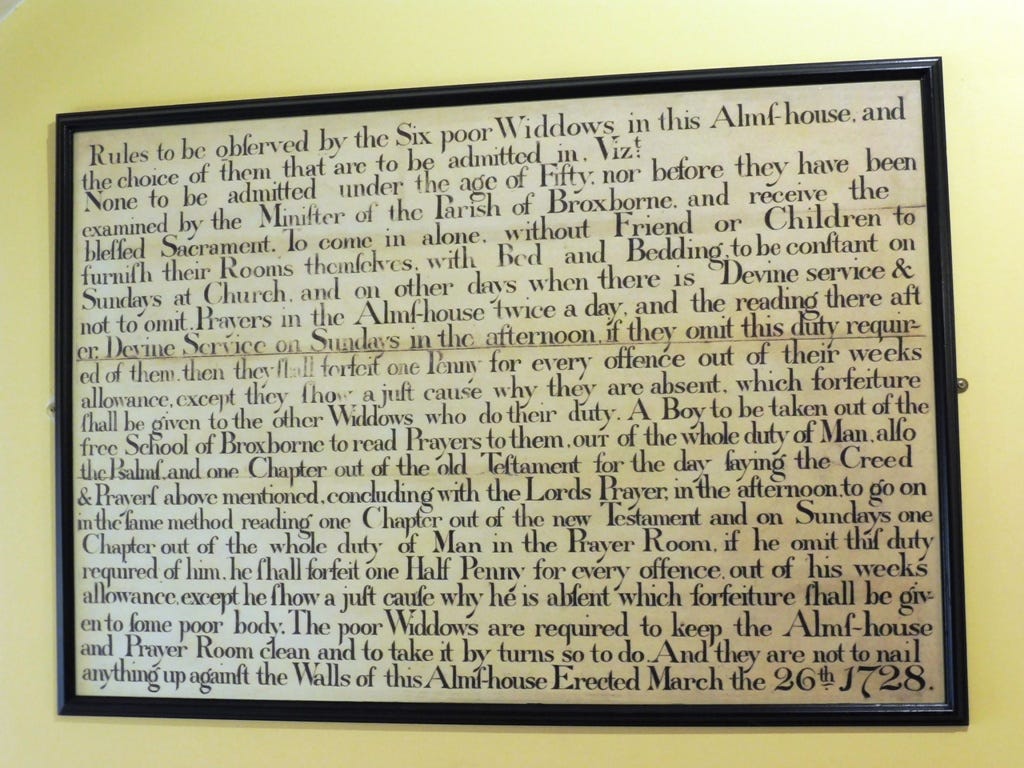 Rules to be obſerved by the Six poor Widdows in this Almſ-house, and
the choice of them that are to be admitted in, Vizt.
None to be admitted under the age of Fifty, nor before they have been
examined by the Miniſter of the Pariſh of Broxborne, and receive the
bleſſed Sacrament. To come in alone, without Friend or Children to
furniſh their Rooms themſelves, with Bed and Bedding, to be conſtant on
Sundays at Church, and on other days when there is Devine service &
not to omit Prayers in the Almſ-houſe twice a day, and the reading there aft
er Devine Service on Sundays in the afternoon, if they omit this duty requir-
ed of them, then they ſhall forfeit one Penny for every offence out of their weeks
allowance, except they ſhow a juſt cause why they are absent, which forfeiture
ſhall be given to the other Widdows who do their duty. A Boy to be taken out of the
free School of Broxborne to read Prayers to them, our of the whole duty of Man, alſo
the Pſalmſ, and one Chapter out of the old Teſtament for the day ſaying the Creed
& Prayerſ above mentioned, concluding with the Lords Prayer, in the afternoon, to go on
in the ſame method reading one Chapter out of the new Testament and on Sundays one
Chapter out of the whole duty of Man in the Prayer Room, if he omit thiſ duty
required of him, he ſhall forfeit one Half Penny for every offence, out of his weeks
allowance, except he ſhow a juſt cauſe why he is abſent which forfeiture ſhall be giv-
en to ſome poor body. The poor Widdows are required to keep the Almſ-house
and Prayer Room clean and to take it by turns so to do. And they are not to nail
anything up againſt the Walls of this Almſ-house Erected March the 26th 1728.